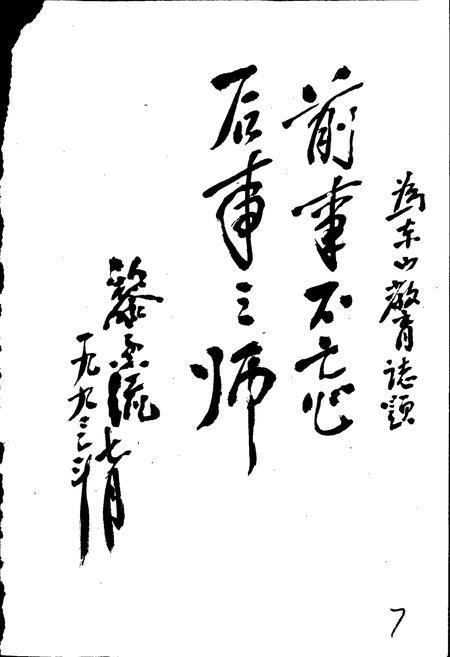 为东山教育志题
前事不忘
后事之师
黎子流
一九九三年
七月
7